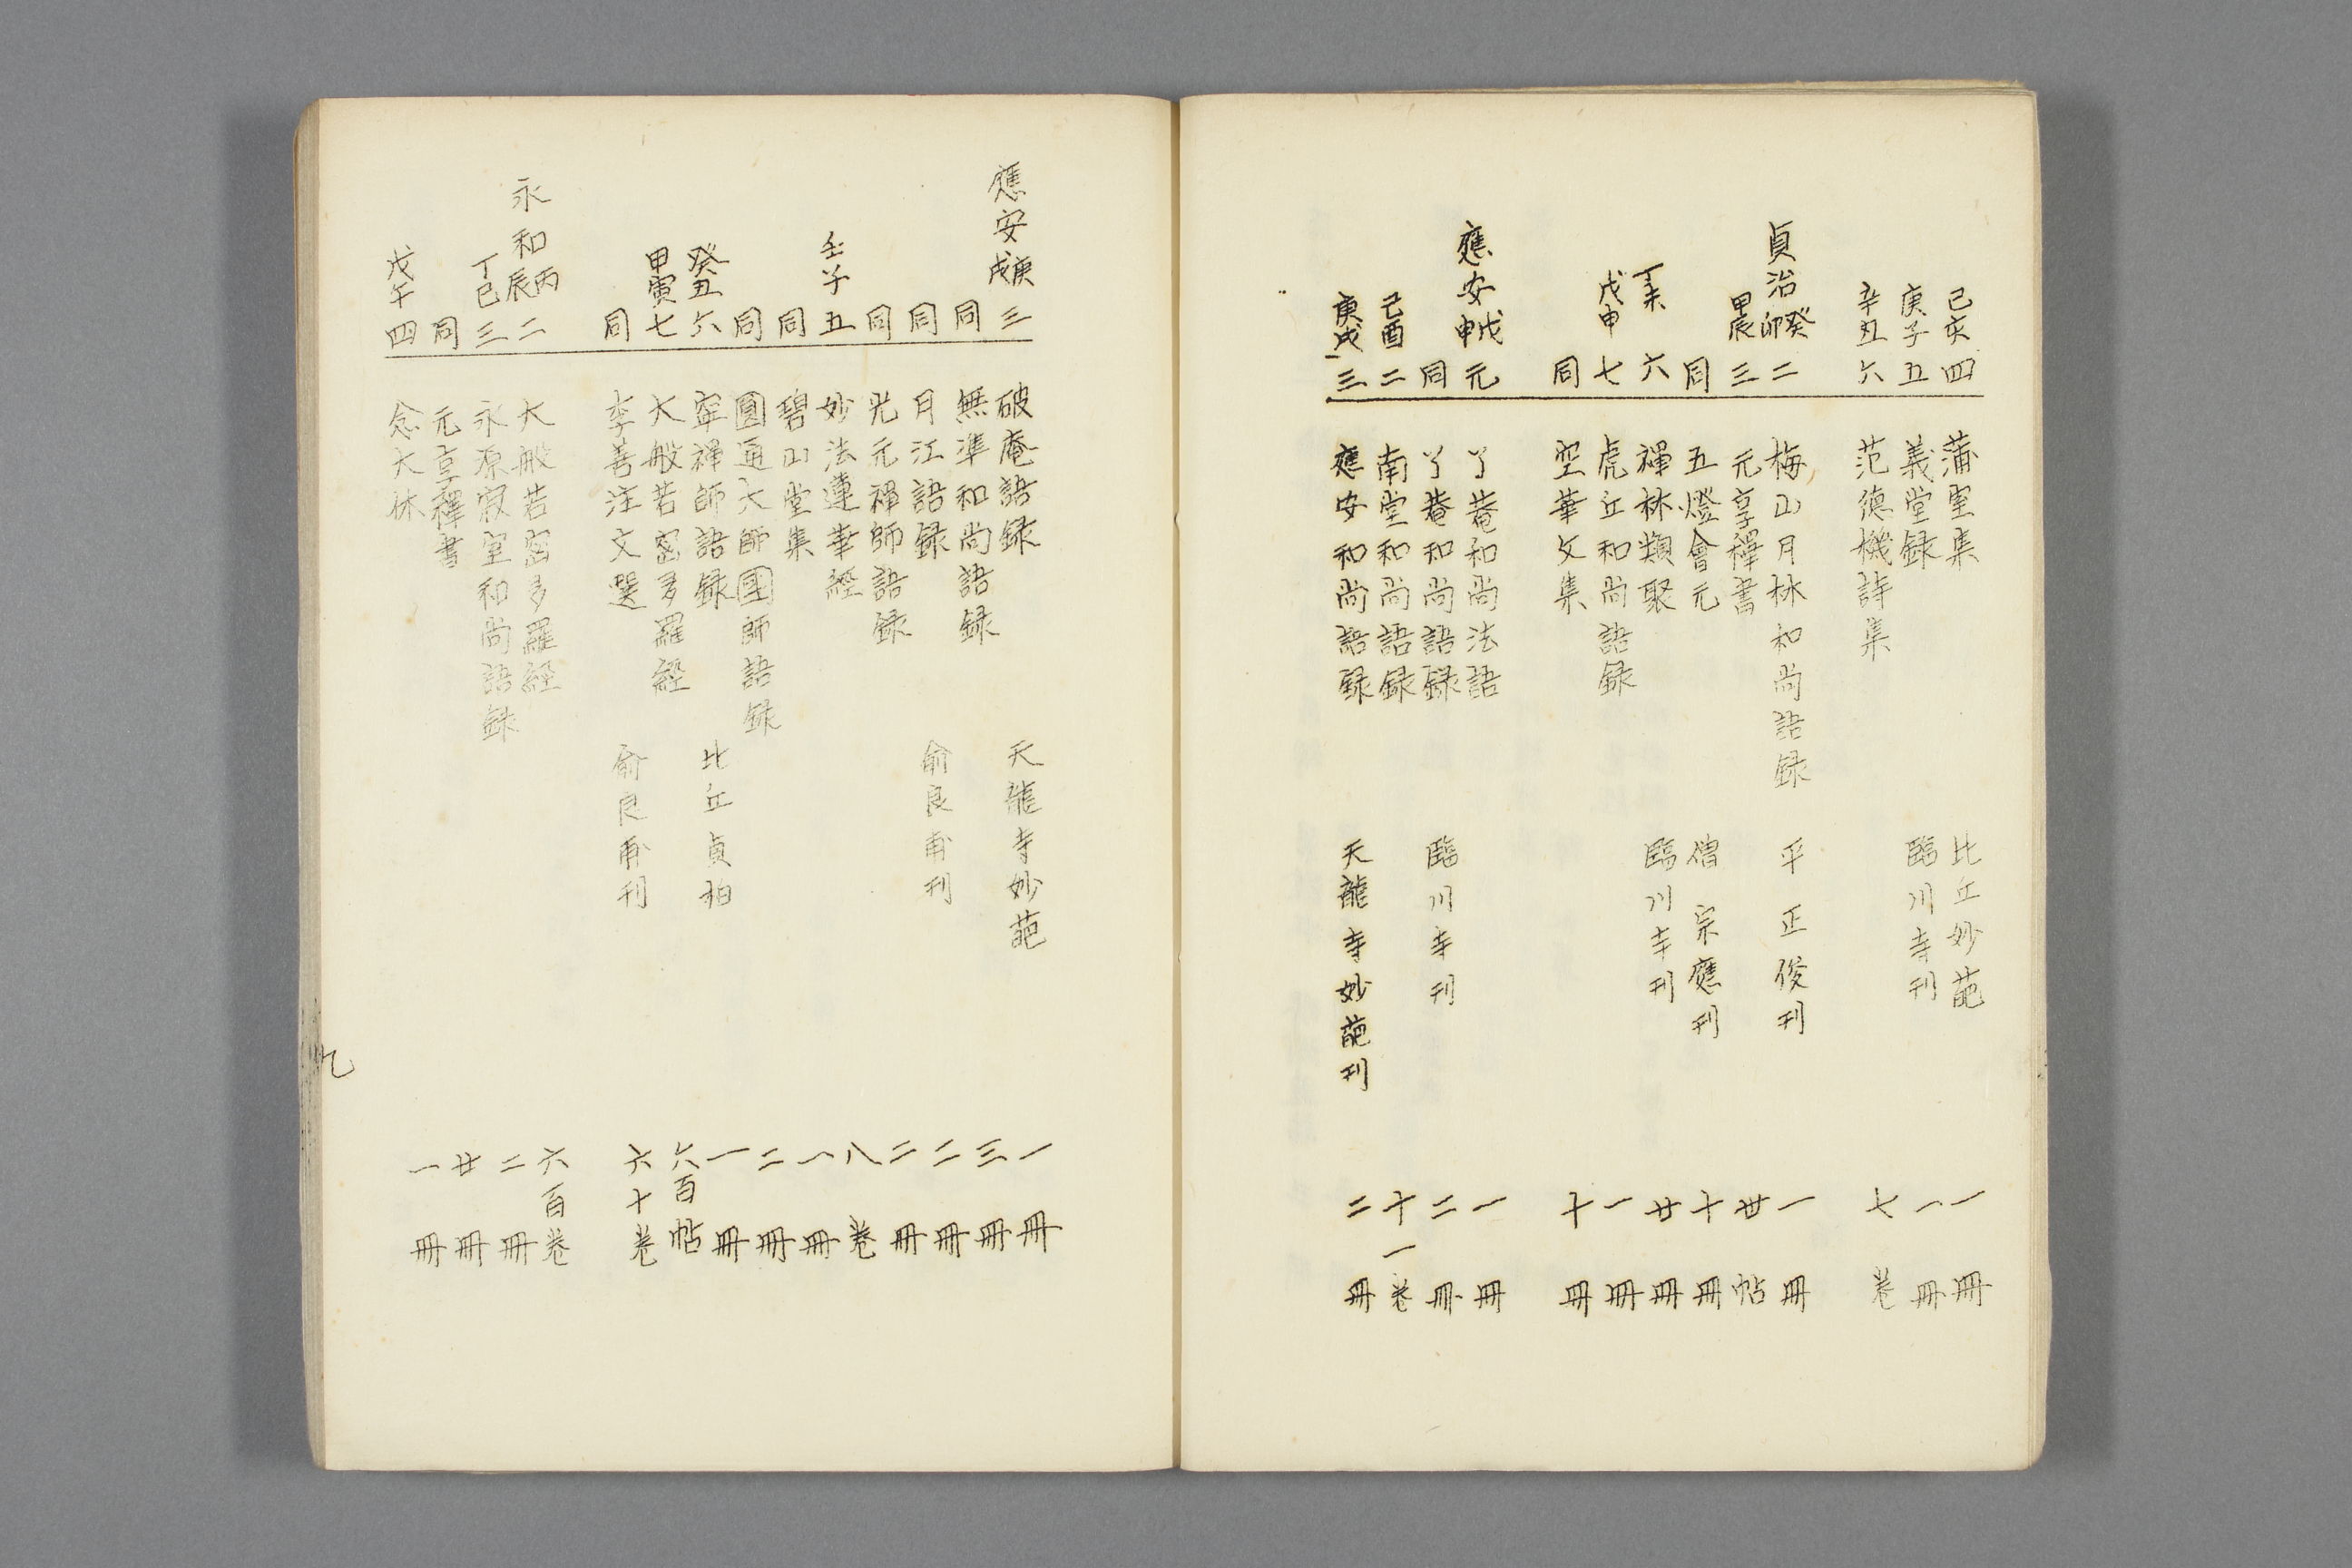 己亥 四 蒲室集 比丘妙葩 一冊
庚子 五 義堂録 臨川寺刊 一冊
辛丑 六 范德機詩集 七卷
貞治癸卯 二 梅山月林和尚語録 平正俊刊 一冊
甲辰 三 元亨釋書 廿帖
同 五燈會元 僧宗應刊 十冊
丁未 六 禪林類聚 臨川寺刊 廿冊
戊申 七 虎丘和尚語録 一冊
同 空華文集 十冊
應安戊申 元 了菴和尚法語 一冊
同 了菴和尚語録 臨川寺刊 二冊
己酉 二 南堂和尚語録 十一卷
庚戌 三 應安和尚語録 天龍寺妙葩刊 二冊
應安庚戌 三 破庵語録 天龍寺妙葩 一冊
同 無準和尚語録 三冊
同 月江語録 俞良甫刊 二冊
同 光元禪師語録 二冊
壬子 五 妙法蓮華經 八卷
同 碧山堂集 一冊
同 圓通大師國師語録 二冊
癸丑 六 宰禪師語録 比丘貞柏 一冊
甲寅 七 大般若密多羅經 六百帖
同 李善注文選 俞良甫刊 六十卷
永和丙辰 二 大般若密多羅經 六百卷
丁巳 三 永源寂室和尚語録 二冊
同 元亨釋書 廿冊
戊午 四 念大休 一冊